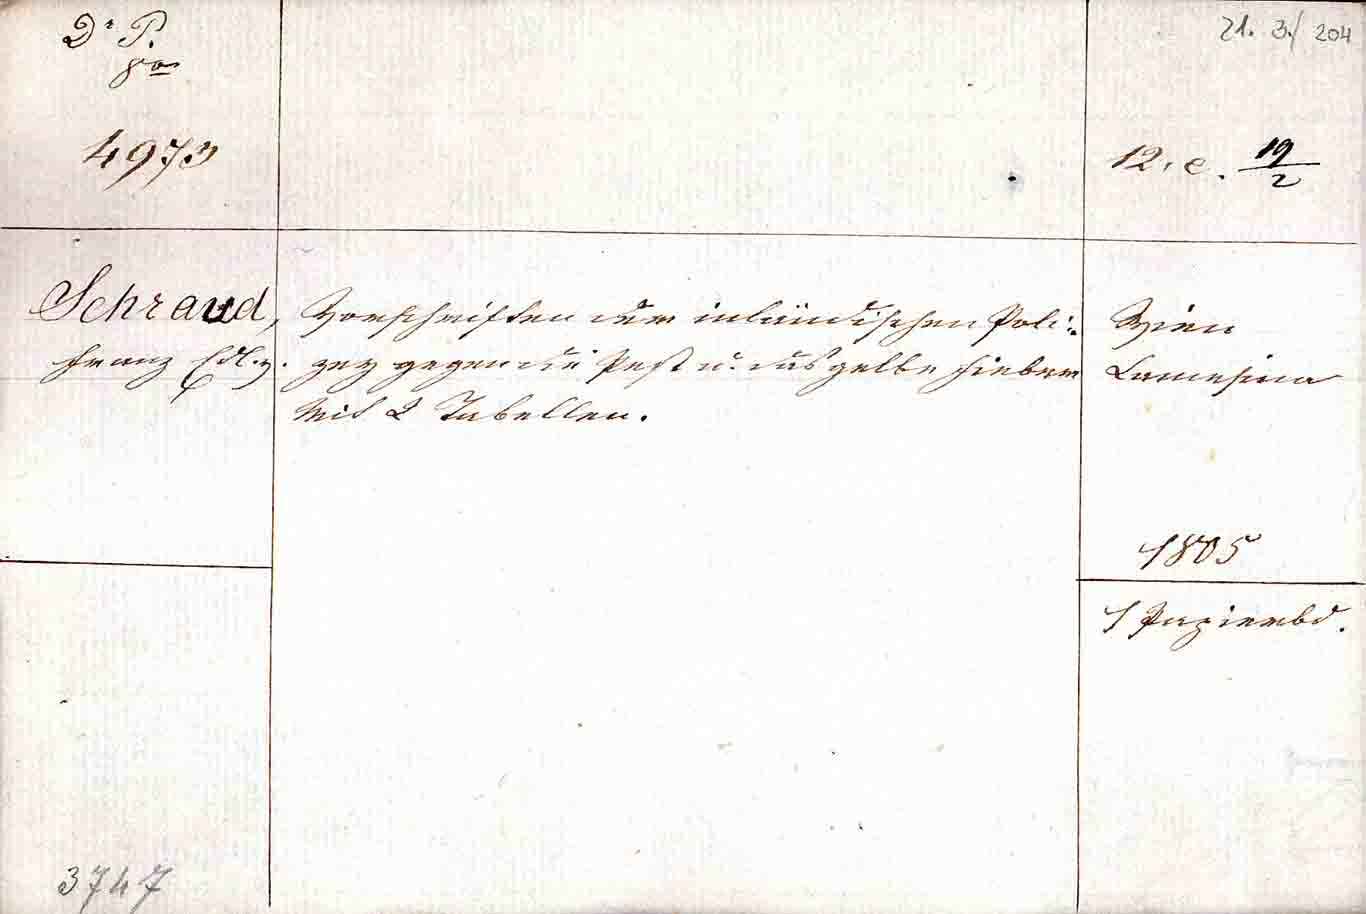 Dr P.
8o
4973
21. 3./ 204
12. e. 19/2
Schraud,
Franz Edl. v.
Vorschriften der inländischen Poli-
zey gegen die Pest u. das gelbe Fieber
Mit 2 Tabellen.
Wien
Camesina
1805
1 Papierbd.
3747